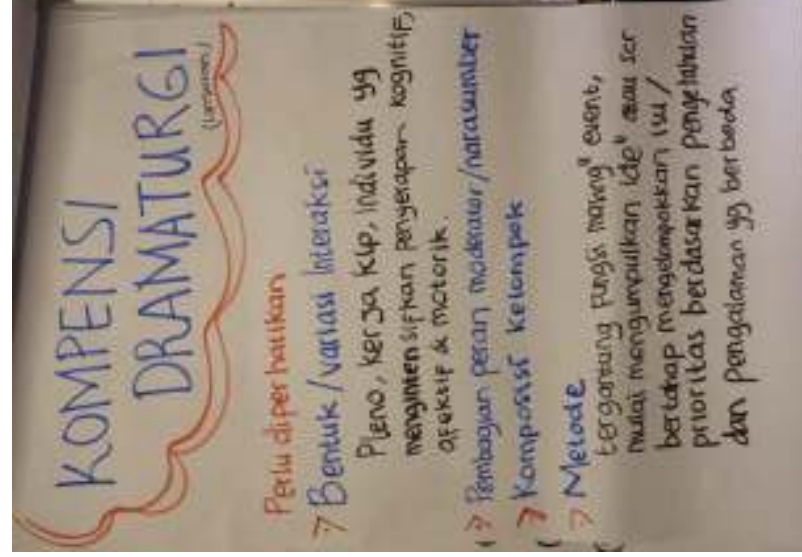 KOMPENSI
DRAMATURGI
(Lampiran)
Perlu diperhatikan
Bentuk/variasi Interaksi
Pleno, kerja klp, individu yg
mengintensifkan penyerapan kognitif,
afektif & motorik.
Pembagian peran moderator/narasumber
Komposisi Kelompok
Metode
tergantung fungsi masing" event,
mulai mengumpulkan ide" atau scr
bertahap mengelompokkan isu/
prioritas berdasarkan pengetahuan
dan pengalaman yg berbeda